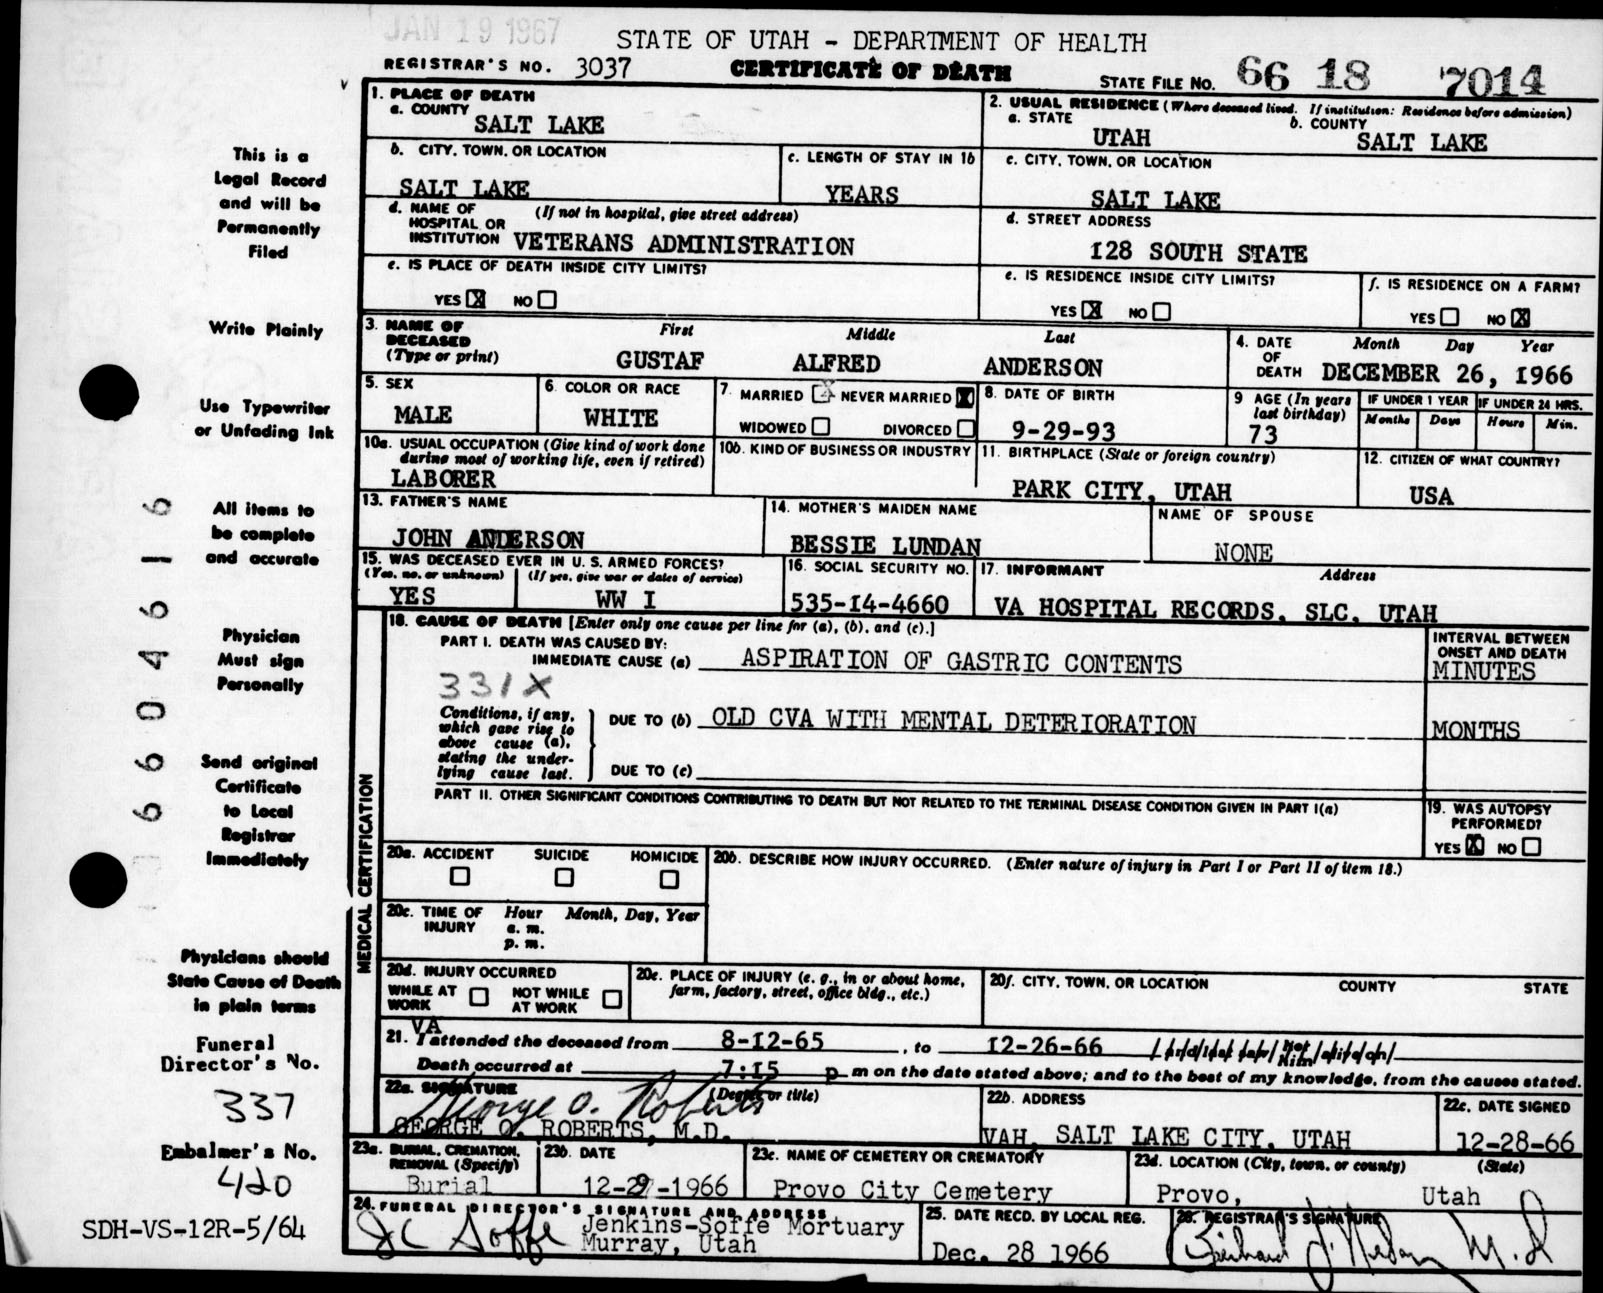 JAN 19 1967
STATE OF UTAH - DEPARTMENT OF HEALTH
REGISTRAR'S NO. 3037
CERTIFICATE OF DEATH
STATE FILE NO. 66 18 7014
This is a
Legal Record
and will be
Permanently
Filed
Write Plainly
Use Typewriter
or Unfading Ink
All items to
be complete
and accurate
Physician
Must sign
Personally
Send original
Certificate
to Local
Registrar
Immediately
Physicians should
State Cause of Death
in plain terms
Funeral
Director's No.
337
Embalmer's No.
420
SDH-VS-12R-5/64
6604616
1. PLACE OF DEATH
a. COUNTY
SALT LAKE
2. USUAL RESIDENCE (Where deceased lived. If institution: Residence before admission)
a. STATE
UTAH
b. COUNTY
SALT LAKE
b. CITY, TOWN, OR LOCATION
SALT LAKE
c. LENGTH OF STAY IN 1b
YEARS
c. CITY, TOWN, OR LOCATION
SALT LAKE
d. NAME OF (If not in hospital, give street address)
HOSPITAL OR
INSTITUTION VETERANS ADMINISTRATION
d. STREET ADDRESS
128 SOUTH STATE
e. IS PLACE OF DEATH INSIDE CITY LIMITS?
YES X NO
e. IS RESIDENCE INSIDE CITY LIMITS?
YES X NO
f. IS RESIDENCE ON A FARM?
YES NO X
3. NAME OF
DECEASED
(Type or print)
First Middle Last
GUSTAF ALFRED ANDERSON
4. DATE
OF
DEATH
Month Day Year
DECEMBER 26, 1966
5. SEX
MALE
6. COLOR OR RACE
WHITE
7. MARRIED X NEVER MARRIED X
WIDOWED DIVORCED
8. DATE OF BIRTH
9-29-93
9 AGE (In years
last birthday)
73
IF UNDER 1 YEAR
Months Days
IF UNDER 24 HRS.
Hours Min.
10a. USUAL OCCUPATION (Give kind of work done
during most of working life, even if retired)
LABORER
10b. KIND OF BUSINESS OR INDUSTRY
11. BIRTHPLACE (State or foreign country)
PARK CITY, UTAH
12. CITIZEN OF WHAT COUNTRY?
USA
13. FATHER'S NAME
JOHN ANDERSON
14. MOTHER'S MAIDEN NAME
BESSIE LUNDAN
NAME OF SPOUSE
NONE
15. WAS DECEASED EVER IN U. S. ARMED FORCES?
(Yes, no, or unknown) (If yes, give war or dates of service)
YES WW I
16. SOCIAL SECURITY NO.
535-14-4660
17. INFORMANT Address
VA HOSPITAL RECORDS, SLC, UTAH
MEDICAL CERTIFICATION
18. CAUSE OF DEATH [Enter only one cause per line for (a), (b), and (c).]
PART I. DEATH WAS CAUSED BY:
IMMEDIATE CAUSE (a) ASPIRATION OF GASTRIC CONTENTS
INTERVAL BETWEEN
ONSET AND DEATH
MINUTES
331X
Conditions, if any,
which gave rise to
above cause (a),
stating the under-
lying cause last.
DUE TO (b) OLD CVA WITH MENTAL DETERIORATION
MONTHS
DUE TO (c)
PART II. OTHER SIGNIFICANT CONDITIONS CONTRIBUTING TO DEATH BUT NOT RELATED TO THE TERMINAL DISEASE CONDITION GIVEN IN PART I(a)
19. WAS AUTOPSY
PERFORMED?
YES X NO
20a. ACCIDENT SUICIDE HOMICIDE
20b. DESCRIBE HOW INJURY OCCURRED. (Enter nature of injury in Part I or Part II of item 18.)
20c. TIME OF
INJURY
Hour Month, Day, Year
a. m.
p. m.
20d. INJURY OCCURRED
WHILE AT
WORK
NOT WHILE
AT WORK
20e. PLACE OF INJURY (e. g., in or about home,
farm, factory, street, office bldg., etc.)
20f. CITY, TOWN, OR LOCATION COUNTY STATE
VA
21. I attended the deceased from 8-12-65, to 12-26-66
Death occurred at 7:15 p m on the date stated above; and to the best of my knowledge, from the causes stated.
22a. SIGNATURE (Degree or title)
George O. Roberts
GEORGE O. ROBERTS, M.D.
22b. ADDRESS
VAH, SALT LAKE CITY, UTAH
22c. DATE SIGNED
12-28-66
23a. BURIAL, CREMATION,
REMOVAL (Specify)
Burial
23b. DATE
12-29-1966
23c. NAME OF CEMETERY OR CREMATORY
Provo City Cemetery
23d. LOCATION (City, town, or county) (State)
Provo, Utah
24. FUNERAL DIRECTOR'S SIGNATURE AND ADDRESS
JC Soffe Jenkins-Soffe Mortuary
Murray, Utah
25. DATE RECD. BY LOCAL REG.
Dec. 28 1966
26. REGISTRAR'S SIGNATURE
M.D